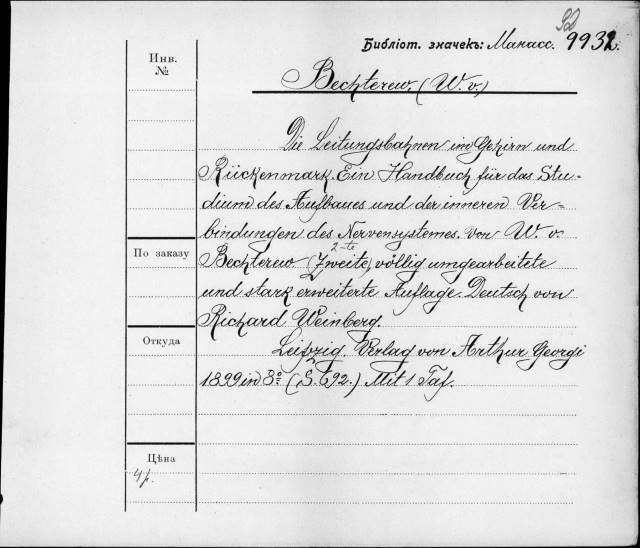 92
Библіот. значекъ: Манасс. 9932.
Инв.
№
Bechterew, (W. v.)
Die Leitungsbahnen im Gehirn und
Rückenmark. Ein Handbuch für das Stu-
dium des Aufbaues und der inneren Ver-
bindungen des Nervensystemes. von W. v.
2-te
По заказу
Bechterew (Zweite), völlig umgearbeitete
und stark erweiterte Auflage. Deutsch von
Richard Weinberg.
Откуда
Leipzig. Verlag von Arthur Georgi
1899 in 8º (S. 692.) Mit 1 Taf.
Цѣна
4 р.